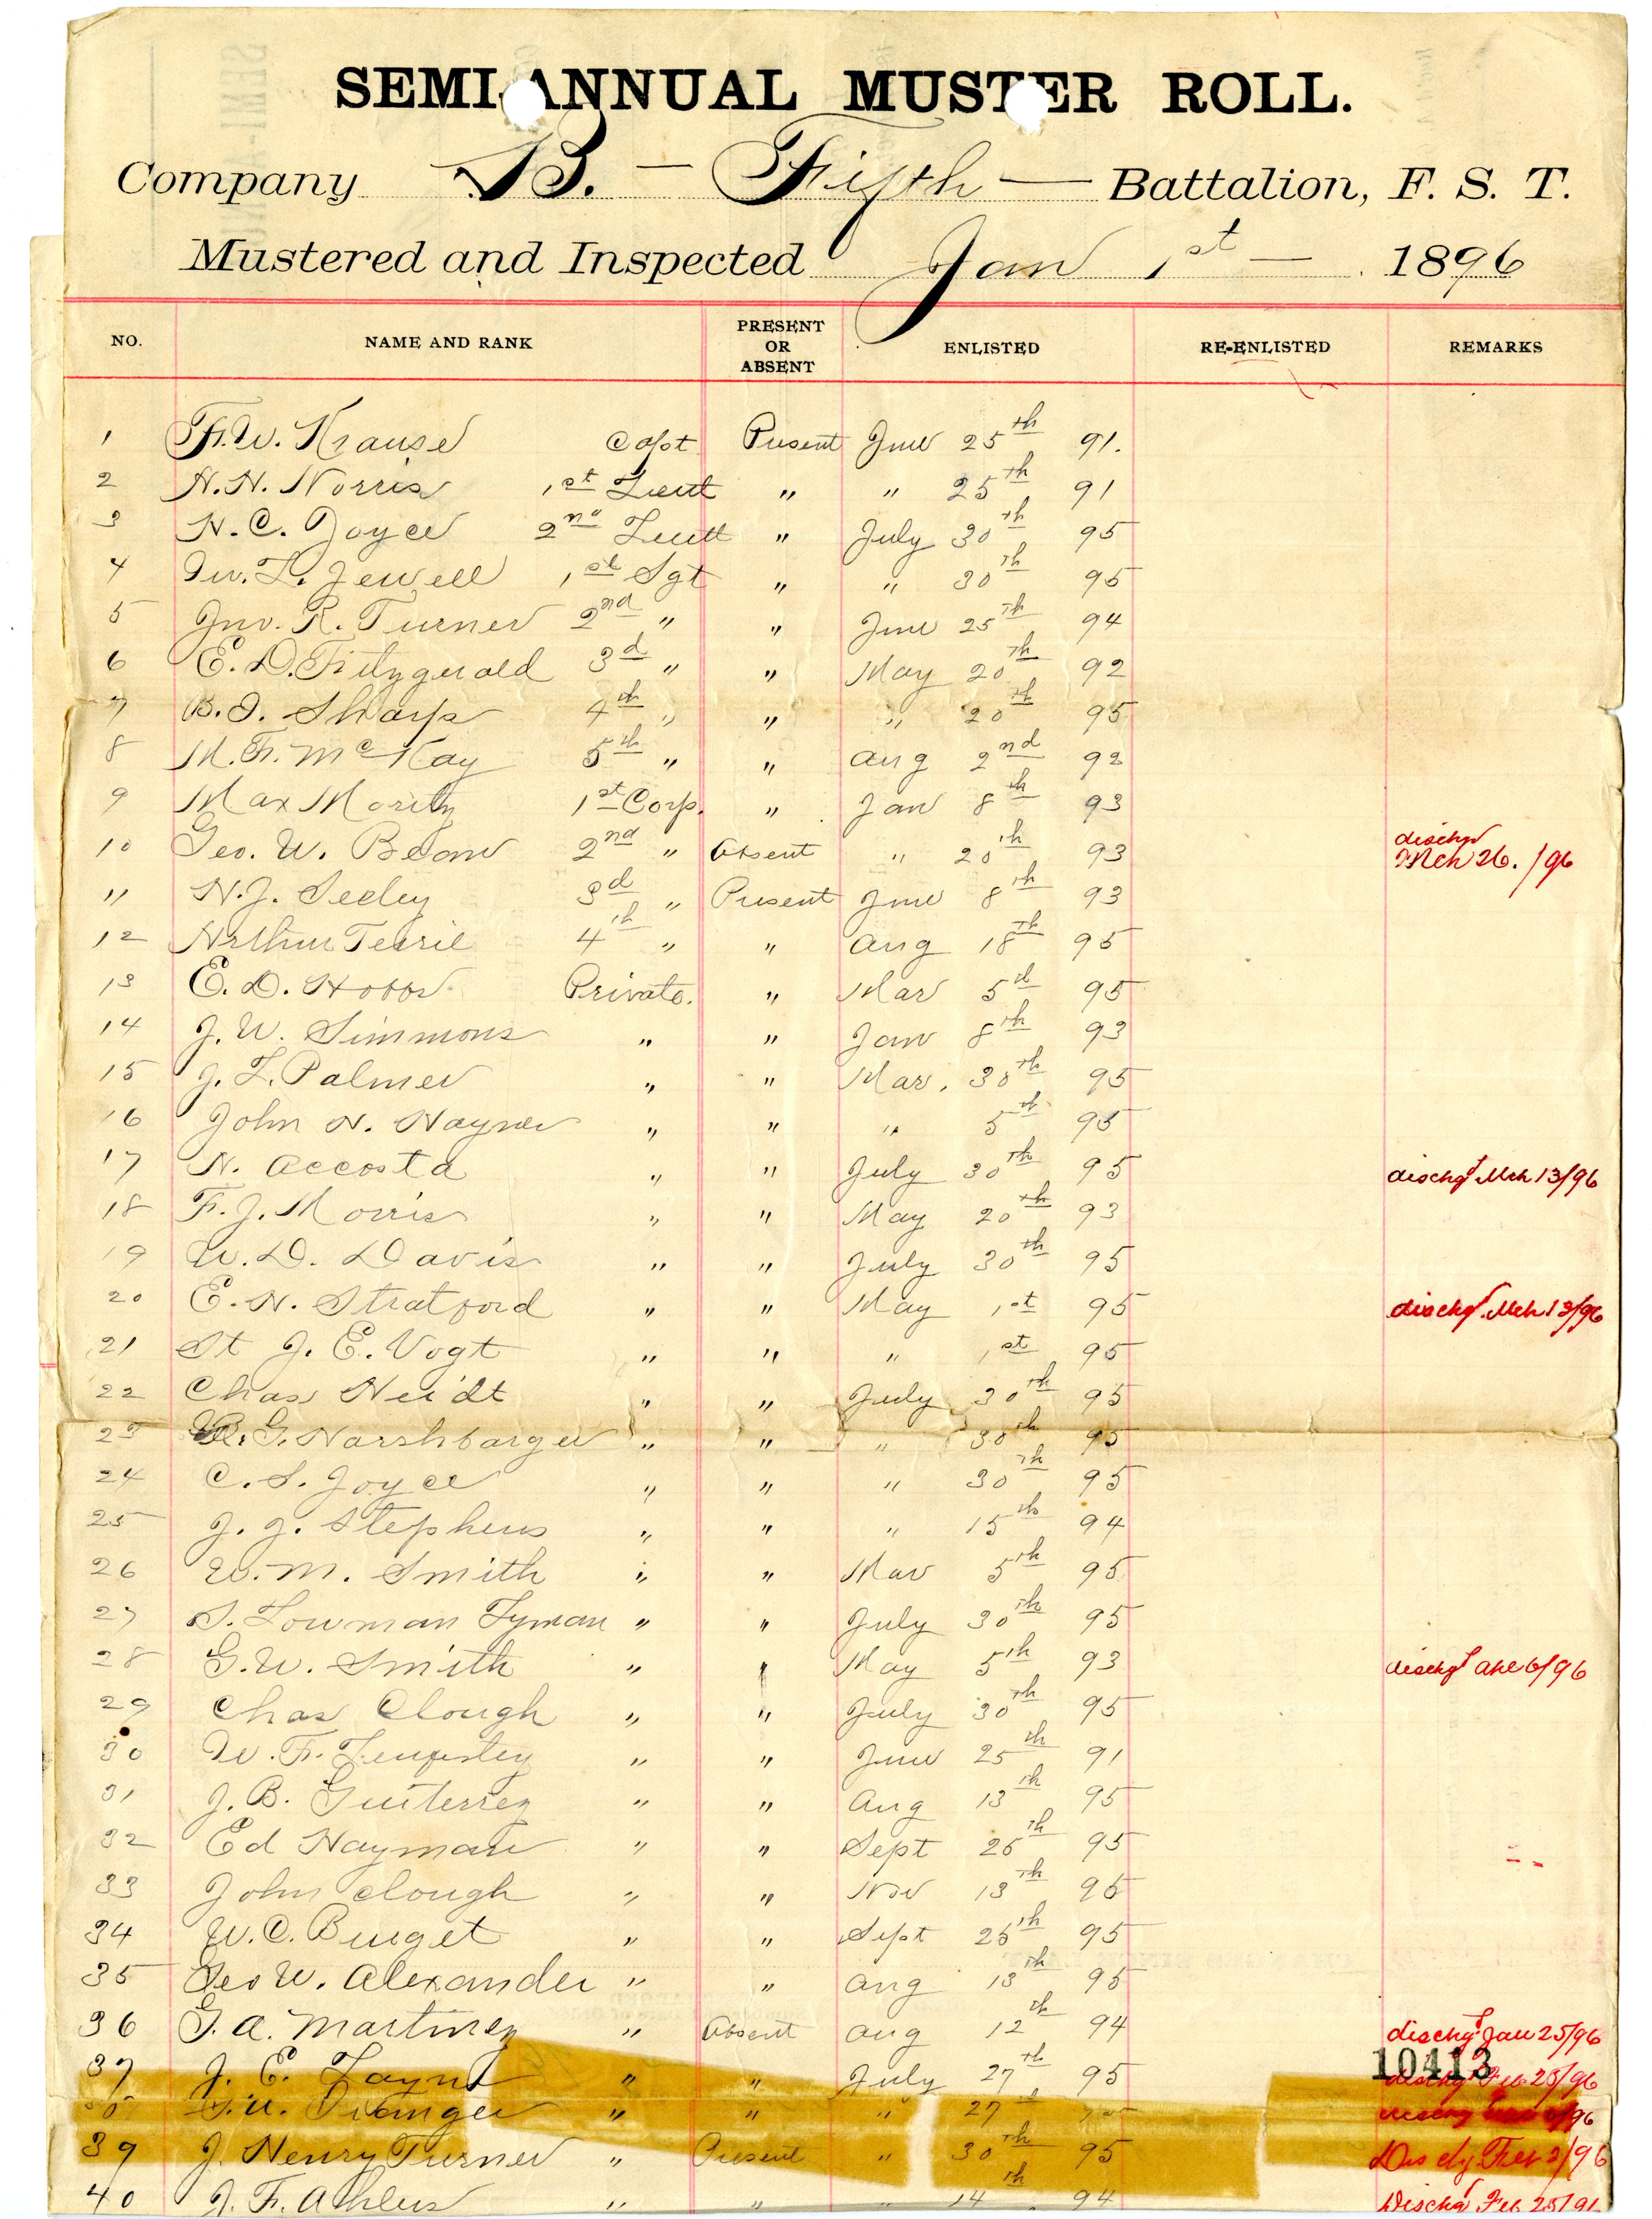 SEMI-ANNUAL MUSTER ROLL.
Company B. — Fifth — Battalion, F. S. T.
Mustered and Inspected Jan 1st — 1896
NO. NAME AND RANK PRESENT OR ABSENT ENLISTED RE-ENLISTED REMARKS
1 F. W. Krause Capt Present June 25th 91.
2 H. H. Norris 1st Lieut " " 25th 91
3 H. C. Joyce 2nd Lieut " July 30th 95
4 W. L. Jewell 1st Sgt " " 30th 95
5 Jno. R. Turner 2nd " " June 25th 94
6 E. D. Fitzgerald 3d " " May 20th 92
7 B. I. Sharp 4th " " " 20th 95
8 M. F. McKay 5th " " Aug 2nd 92
9 Max Moritz 1st Corp. " Jan 8th 93
10 Geo. W. Bean 2nd " Absent " 20th 93 dischgd Mch 26. /96
11 H. J. Seeley 3d " Present June 8th 93
12 Arthur 4th " " Aug 18th 95
13 E. D. Hobbs Private. " Mar 5th 95
14 J. W. Simmons " " Jan 8th 93
15 J. L. Palmer " " Mar. 30th 95
16 John H. " " " 5th 95
17 N. Accosta " " July 30th 95 dischgd Mch 13/96
18 F. J. Morris " " May 20th 93
19 W. D. Davis " " July 30th 95
20 E. H. Stratford " " May 1st 95 dischgd Mch 13/96
21 St J. E. Vogt " " " 1st 95
22 Chas Heidt " " July 30th 95
23 G. Harshbarger " " " 30th 95
24 C. S. Joyce " " " 30th 95
25 J. J. Stephens " " " 15th 94
26 W. M. Smith " " Mar 5th 95
27 S. Lowman Lyman " " July 30th 95
28 G. W. Smith " " May 5th 93 dischgd 6/96
29 Chas Clough " " July 30th 95
30 W. F. " " June 25th 91
31 J. B. Guiterrez " " Aug 13th 95
32 Ed Hayman " " Sept 25th 95
33 John Clough " " Nov 13th 95
34 W. C. Burget " " Sept 25th 95
35 Geo W. Alexander " " Aug 13th 95
36 G. A. Martinez " Absent Aug 12th 94 dischgd Jan 25/96
10413
37 J. E. Layne " " July 27th 95 dischgd Feb 25/96
" " " 27 /96
39 J. Henry Turner " Present " 30th 95 Feb 2/96
40 J. F. Ahlers " " " 14th 94 Dischgd Feb 25/96